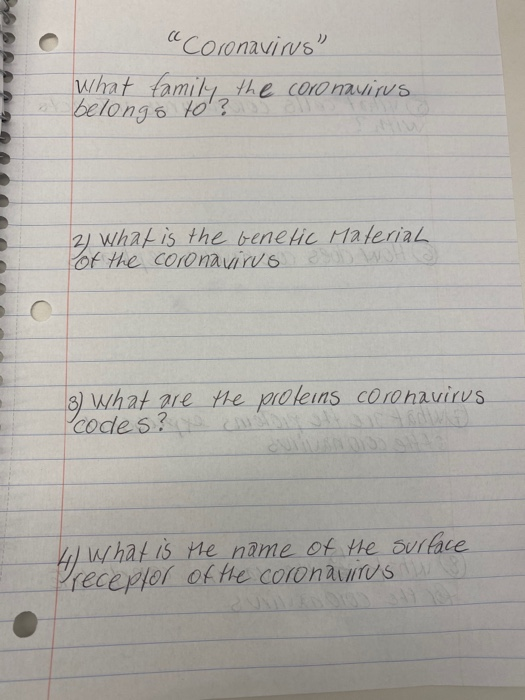 "Coronavirus"
What family the coronavirus
belongs to?
2) What is the Genetic Material
of the coronavirus
3) What are the proteins coronavirus
codes?
4) What is the name of the surface
receptor of the coronavirus